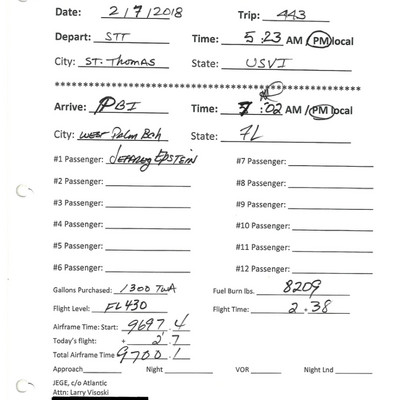 Date: 2/7/2018 Trip: 443
Depart: STT Time: 5:23 AM / PM local
City: ST. Thomas State: USVI
********************************************************
Arrive: PBI Time: :02 AM / PM local
City: WEST Palm Bch State: FL
#1 Passenger: Jeffrey EPSTEIN #7 Passenger:
#2 Passenger: #8 Passenger:
#3 Passenger: #9 Passenger:
#4 Passenger: #10 Passenger:
#5 Passenger: #11 Passenger:
#6 Passenger: #12 Passenger:
Gallons Purchased: 1300 TWA Fuel Burn lbs. 8209
Flight Level: FL430 Flight Time: 2.38
Airframe Time: Start: 9697.4
Today's flight: + 2.7
Total Airframe Time 9700.1
Approach Night VOR Night Lnd
JEGE, c/o Atlantic
Attn: Larry Visoski